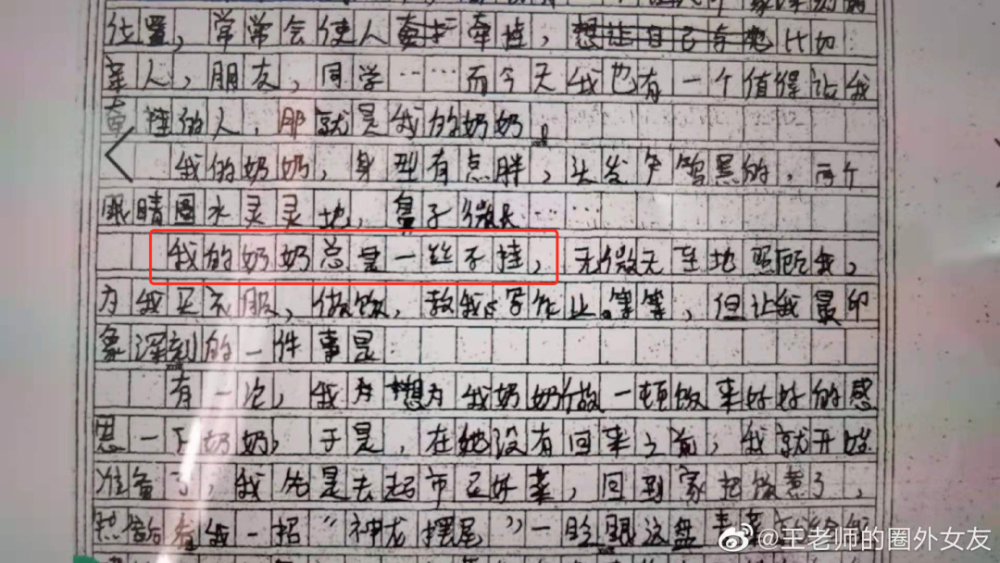 位置，常常会使人牵挂，想让自己去 比如
亲人，朋友，同学……而今天我也有一个值得让我
牵挂的人，那就是我的奶奶。
我的奶奶，身型有点胖，头发 黑的，两个
眼睛圆水灵灵地，鼻子微长……
我的奶奶总是一丝不挂，无微无至地照顾我，
为我买衣服，做饭，教我写作业等等，但让我最印
象深刻的一件事是
有一次，我为想为我奶奶做一顿饭来好好的感
恩一下奶奶，于是，在她没有回来之前，我就开始
准备了，我先是去超市买好菜，回到家把饭煮了，
我一招“神龙摆尾”一 眼这盘青菜
@王老师的圈外女友